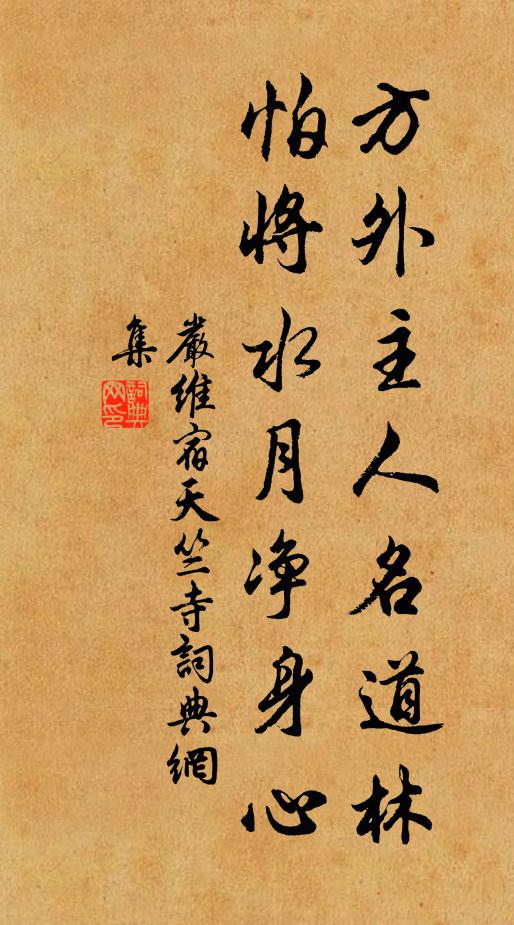 方外主人名道林
怕將水月净身心
嚴維宿天竺寺詞典網
集
詞典網印